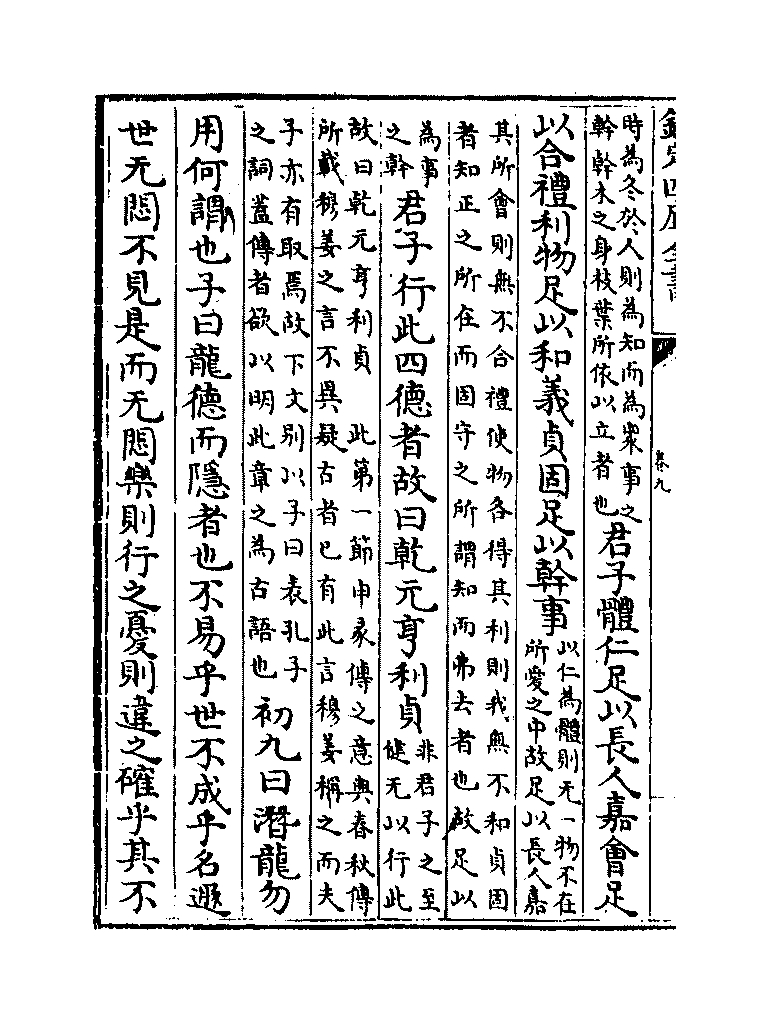 欽定四庫全書
卷九
時為冬於人則為知而為衆事之
幹幹木之身枝葉所依以立者也
君子體仁足以長人嘉會足
以合禮利物足以和義貞固足以幹事
以仁為體則无一物不在
所愛之中故足以長人嘉
其所會則無不合禮使物各得其利則我無不和貞固
者知正之所在而固守之所謂知而弗去者也故足以
為事
之幹
君子行此四德者故曰乾元亨利貞
非君子之至
健无以行此
故曰乾元亨利貞　此第一節申彖傳之意與春秋傳
所載穆姜之言不異疑古者已有此言穆姜稱之而夫
子亦有取焉故下文別以子曰表孔子
之詞蓋傳者欲以明此章之為古語也
初九曰潛龍勿
用何謂也子曰龍德而隱者也不易乎世不成乎名遯
世无悶不見是而无悶樂則行之憂則違之確乎其不